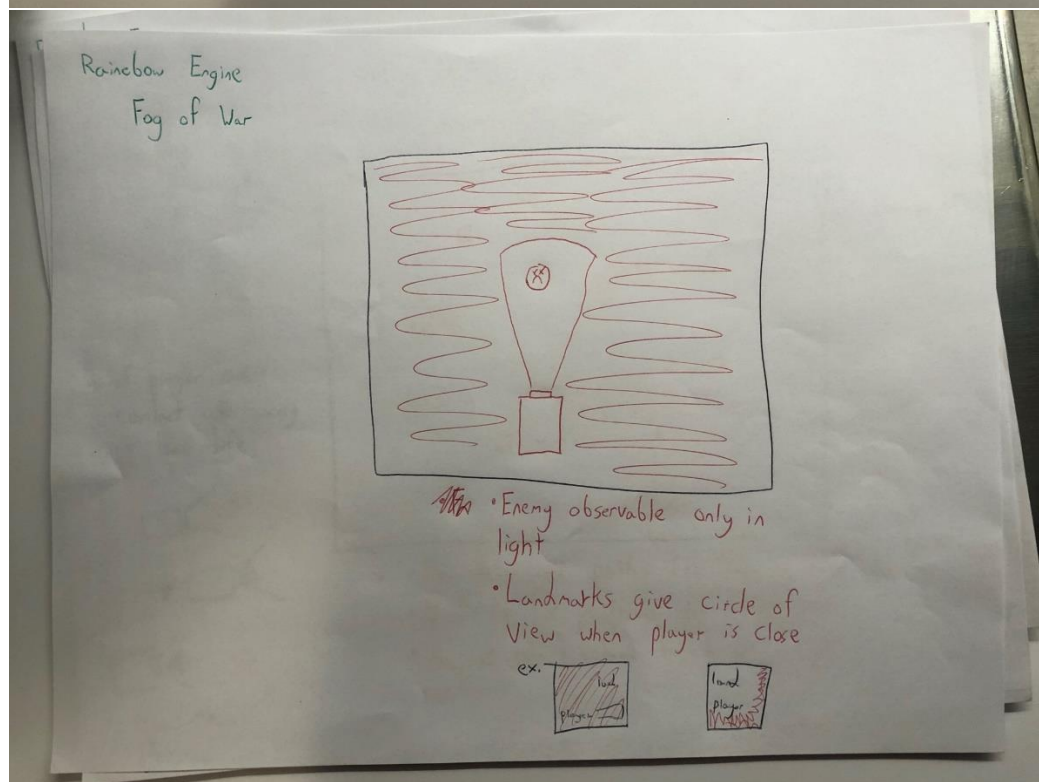 Rainebow Engine
Fog of War
• Enemy observable only in
light
• Landmarks give circle of
View when player is close
ex.
land
player
land
player